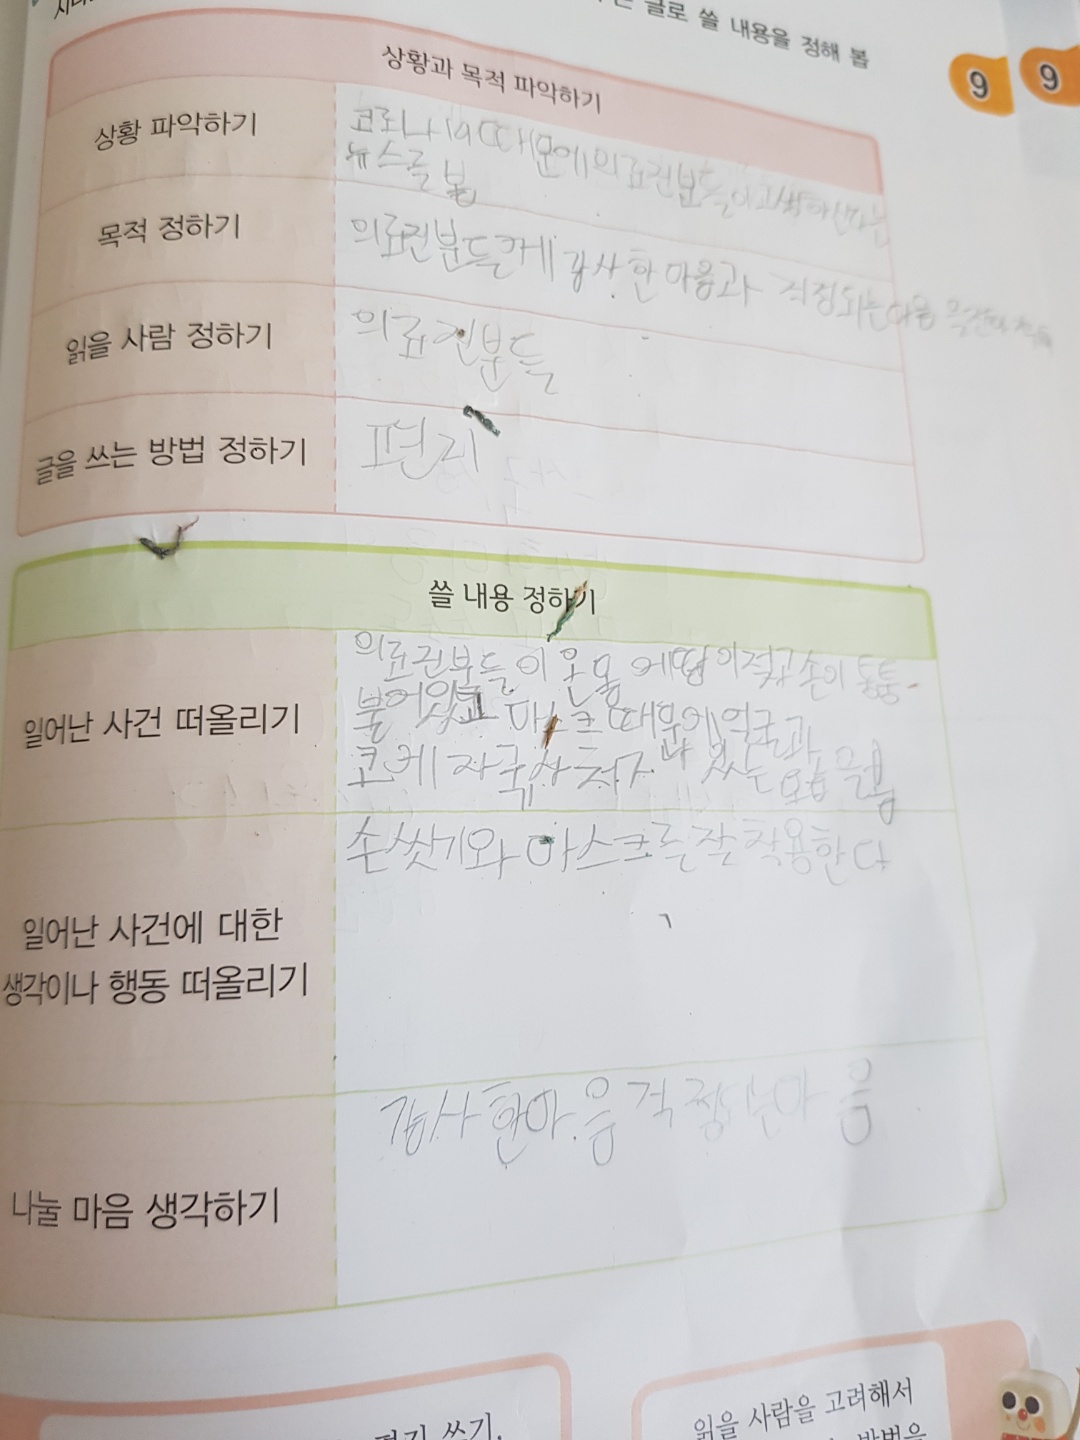 글로 쓸 내용을 정해 봅
9 9
상황과 목적 파악하기
상황 파악하기
코로나19때문에 의료진분들이 고생하신다는
뉴스를 봄
목적 정하기
의료진분들께 감사한 마음과 걱정되는마음
읽을 사람 정하기
의료진분들
글을 쓰는 방법 정하기
편지
쓸 내용 정하기
일어난 사건 떠올리기
의료진분들이 온몸에땀이적고 손이 퉁퉁
불어있고 마스크 때문에 얼굴과
코에 자국, 상처가 나 있는 모습을봄
일어난 사건에 대한
생각이나 행동 떠올리기
손씻기와 마스크를잘 착용한다
나눌 마음 생각하기
감사한마음 걱정 마음
편지 쓰기,
읽을 사람을 고려해서
방법을